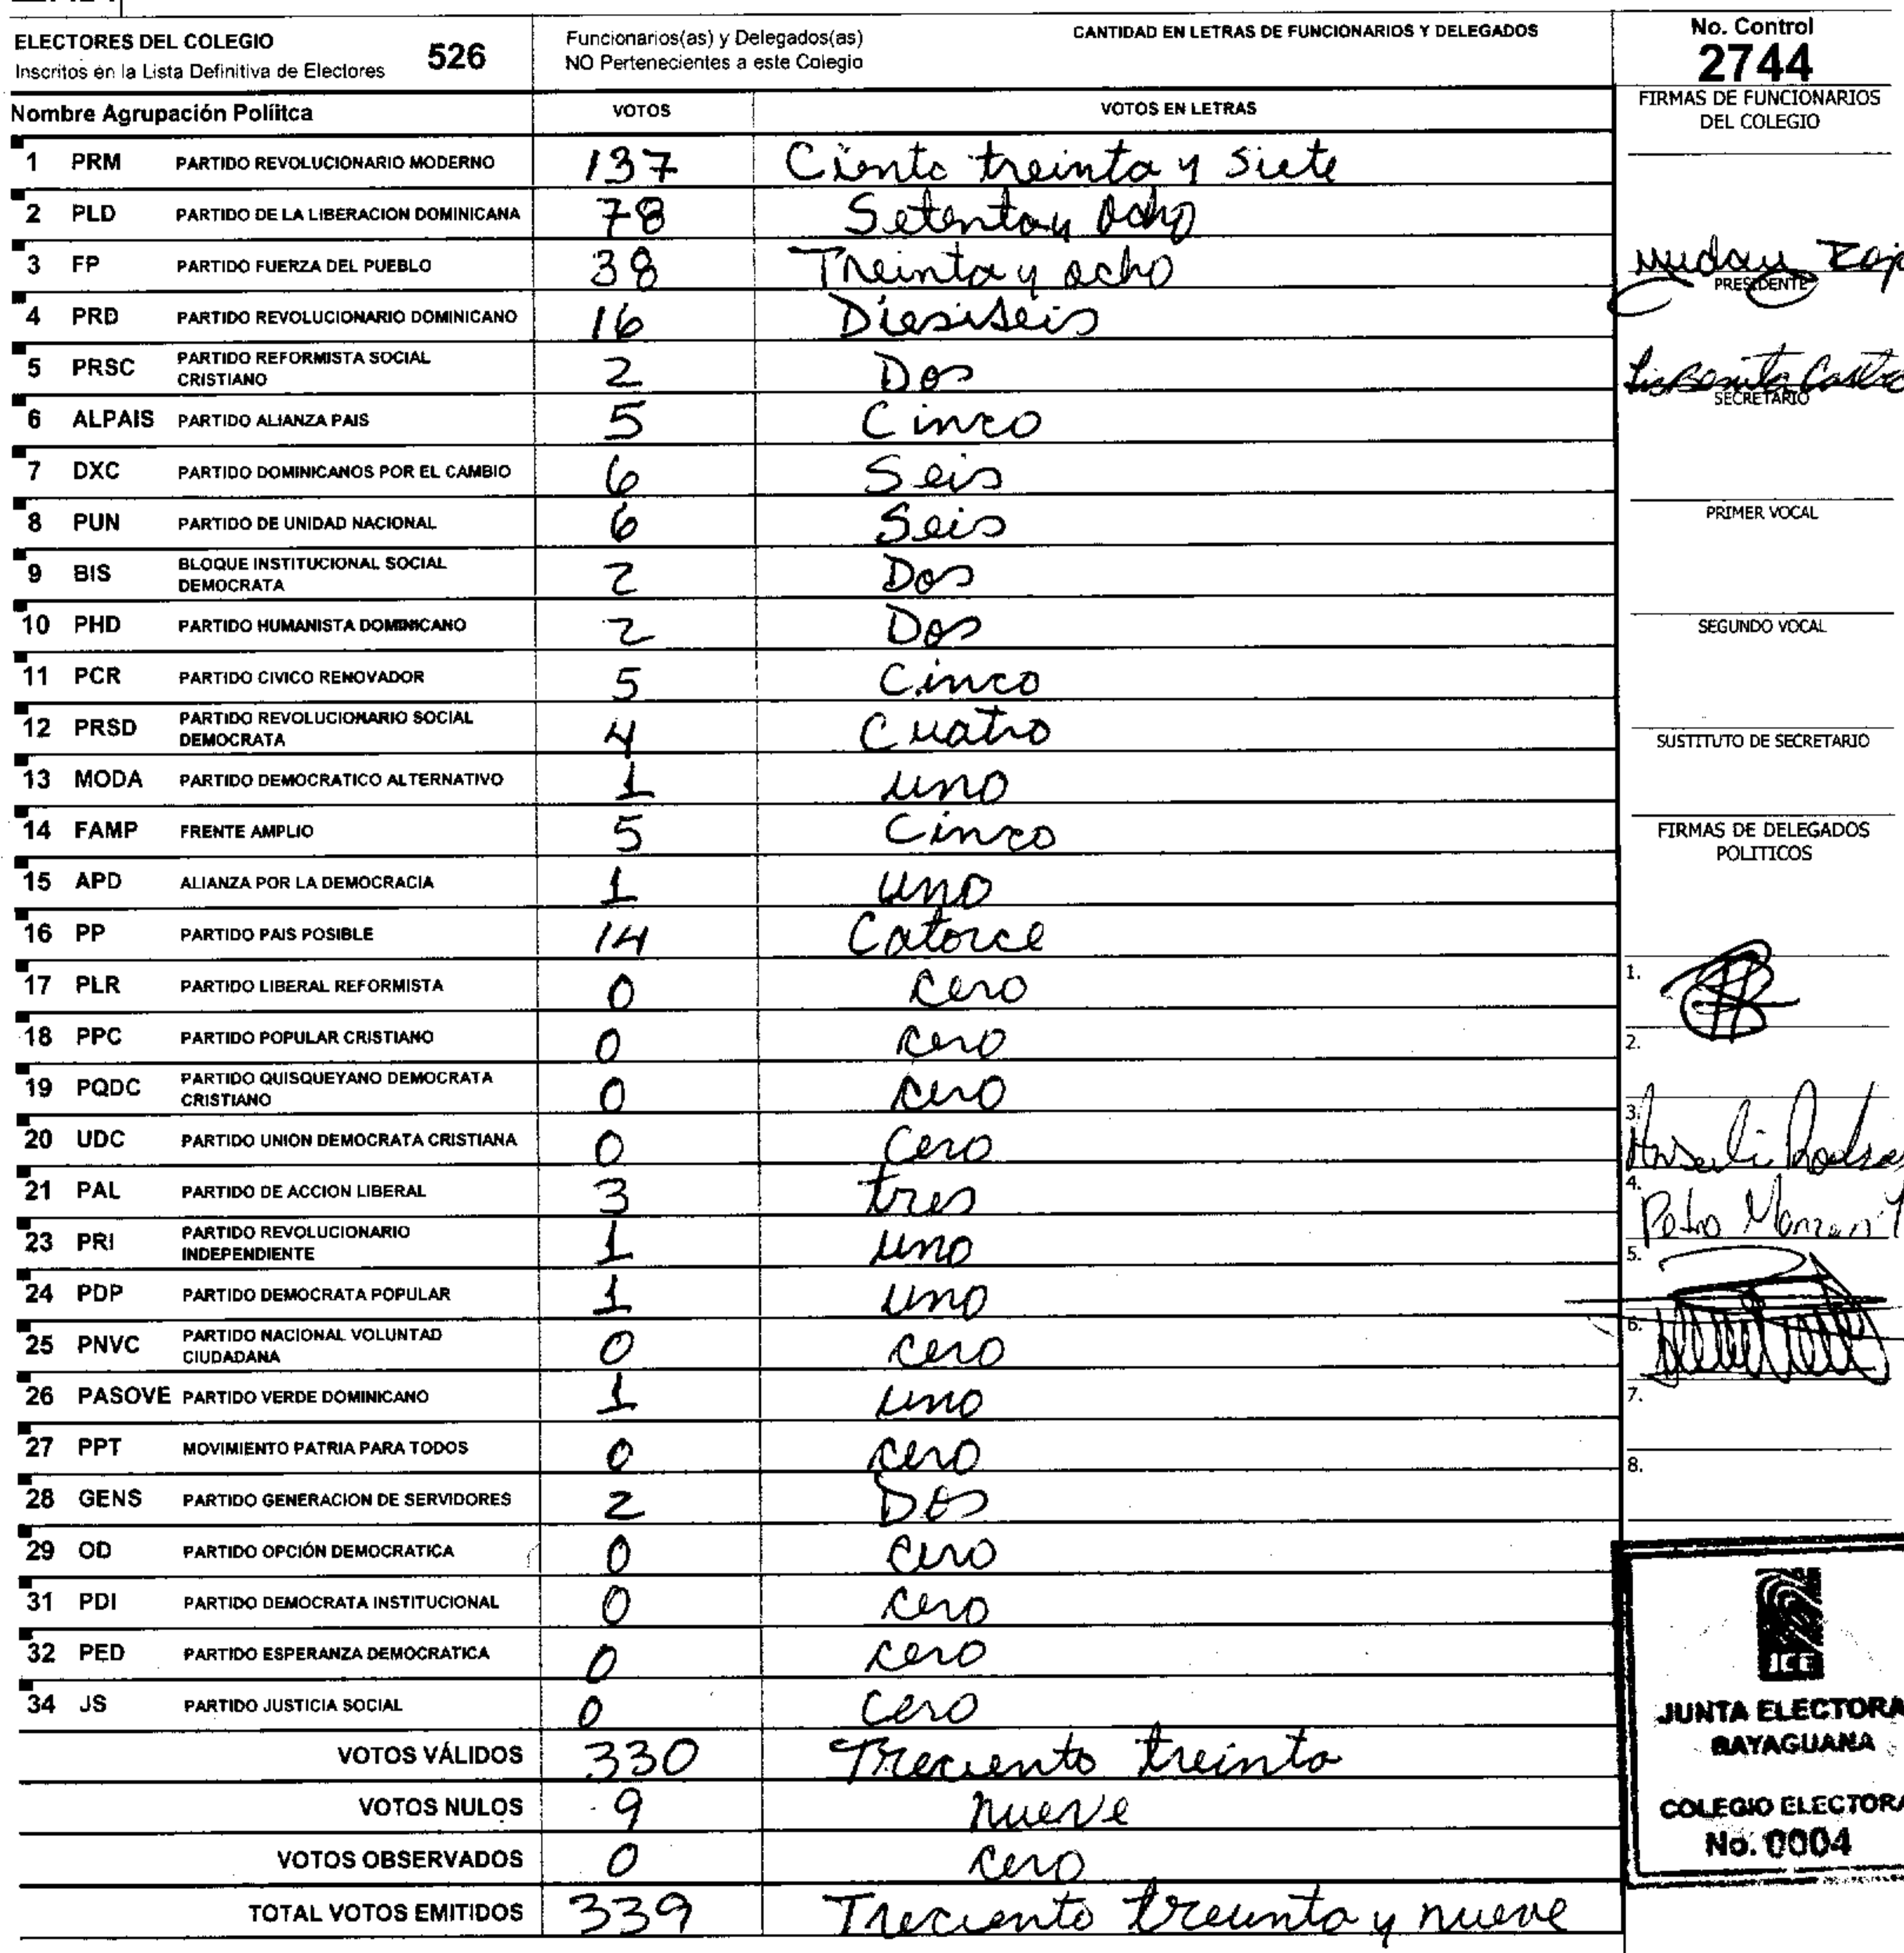 ELECTORES DEL COLEGIO
Inscritos en la Lista Definitiva de Electores 526
Funcionarios(as) y Delegados(as)
NO Pertenecientes a este Colegio
CANTIDAD EN LETRAS DE FUNCIONARIOS Y DELEGADOS
No. Control
2744
Nombre Agrupación Poliítca VOTOS VOTOS EN LETRAS
1 PRM PARTIDO REVOLUCIONARIO MODERNO 137 Ciento treinta y siete
2 PLD PARTIDO DE LA LIBERACION DOMINICANA 78 Setenta y Ocho
3 FP PARTIDO FUERZA DEL PUEBLO 38 Treinta y ocho
4 PRD PARTIDO REVOLUCIONARIO DOMINICANO 16 Diesiseis
5 PRSC PARTIDO REFORMISTA SOCIAL CRISTIANO 2 Dos
6 ALPAIS PARTIDO ALIANZA PAIS 5 Cinco
7 DXC PARTIDO DOMINICANOS POR EL CAMBIO 6 Seis
8 PUN PARTIDO DE UNIDAD NACIONAL 6 Seis
9 BIS BLOQUE INSTITUCIONAL SOCIAL DEMOCRATA 2 Dos
10 PHD PARTIDO HUMANISTA DOMINICANO 2 Dos
11 PCR PARTIDO CIVICO RENOVADOR 5 Cinco
12 PRSD PARTIDO REVOLUCIONARIO SOCIAL DEMOCRATA 4 Cuatro
13 MODA PARTIDO DEMOCRATICO ALTERNATIVO 1 uno
14 FAMP FRENTE AMPLIO 5 Cinco
15 APD ALIANZA POR LA DEMOCRACIA 1 uno
16 PP PARTIDO PAIS POSIBLE 14 Catorce
17 PLR PARTIDO LIBERAL REFORMISTA 0 cero
18 PPC PARTIDO POPULAR CRISTIANO 0 cero
19 PQDC PARTIDO QUISQUEYANO DEMOCRATA CRISTIANO 0 cero
20 UDC PARTIDO UNION DEMOCRATA CRISTIANA 0 Cero
21 PAL PARTIDO DE ACCION LIBERAL 3 tres
23 PRI PARTIDO REVOLUCIONARIO INDEPENDIENTE 1 uno
24 PDP PARTIDO DEMOCRATA POPULAR 1 uno
25 PNVC PARTIDO NACIONAL VOLUNTAD CIUDADANA 0 cero
26 PASOVE PARTIDO VERDE DOMINICANO 1 uno
27 PPT MOVIMIENTO PATRIA PARA TODOS 0 cero
28 GENS PARTIDO GENERACION DE SERVIDORES 2 Dos
29 OD PARTIDO OPCIÓN DEMOCRATICA 0 cero
31 PDI PARTIDO DEMOCRATA INSTITUCIONAL 0 cero
32 PED PARTIDO ESPERANZA DEMOCRATICA 0 cero
34 JS PARTIDO JUSTICIA SOCIAL 0 Cero
VOTOS VÁLIDOS 330 Treciento treinta
VOTOS NULOS 9 nueve
VOTOS OBSERVADOS 0 cero
TOTAL VOTOS EMITIDOS 339 Treciento treunta y nueve
FIRMAS DE FUNCIONARIOS
DEL COLEGIO
PRESIDENTE
Benita Castro
SECRETARIO
PRIMER VOCAL
SEGUNDO VOCAL
SUSTITUTO DE SECRETARIO
FIRMAS DE DELEGADOS
POLITICOS
1.
2.
3.
4.
5.
6.
7.
8.
JCE
JUNTA ELECTORA
BAYAGUANA
COLEGIO ELECTORA
No. 0004